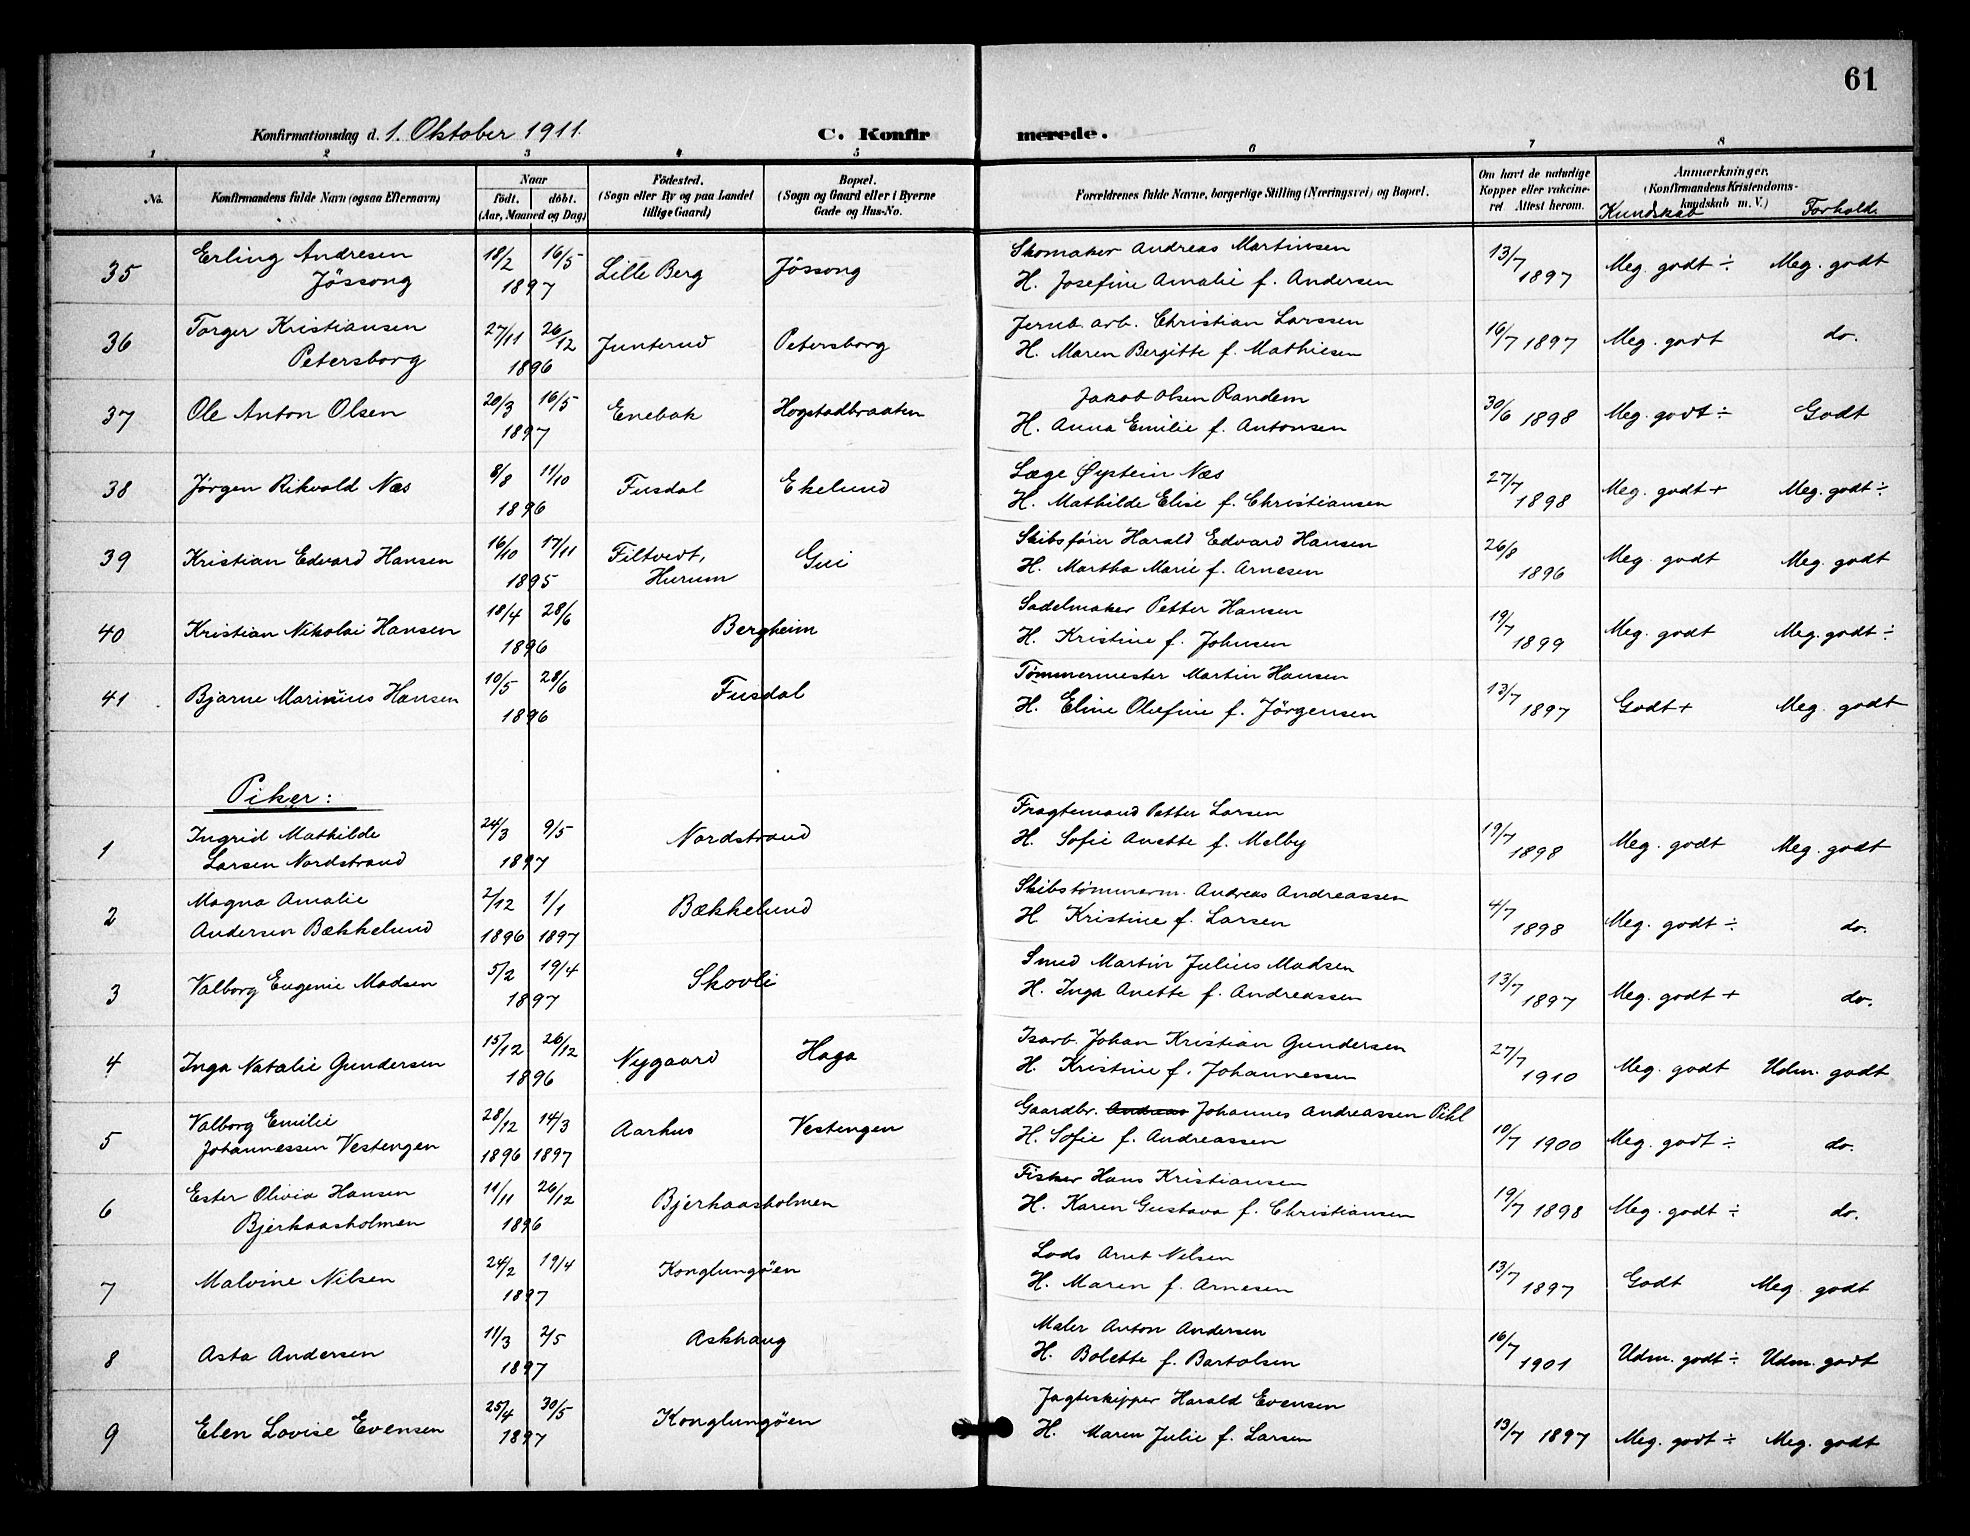 61
Konfirmationsdag d. 1. Oktober 1911.
C. Konfirmerede.
1 2 3 4 5 6 7 8
No. Konfirmandens fulde Navn (ogsaa Efternavn) Naar født. døbt. (Aar, Maaned og Dag) Fødested. (Sogn eller By og paa Landet tillige Gaard) Bopæl. (Sogn og Gaard eller i Byerne Gade og Hus-No. Forældrenes fulde Navne, borgerlige Stilling (Næringsvei) og Bopæl. Om havt de naturlige Kopper eller vakcineret Attest herom. Anmerkninger. (Konfirmandens Kristendomskundskab m. V.) Kundskab Forhold.
35 Erling Andresen Jössong 18/2 16/5 1897 Lille Berg Jössong Skomaker Andreas Martinsen H. Josefine Amalie f. Andersen 13/7 1897 Meg. godt ÷ Meg. godt
36 Torger Kristiansen Petersborg 27/11 26/12 1896 Junterud Petersborg Jernb. arb. Christian Larssen H. Maren Bergitte f. Mathiesen 16/7 1897 Meg. godt do.
37 Ole Anton Olsen 20/3 16/5 1897 Enebak Hogstadbraaten Jakob Olsen Randem H. Anna Emilie f. Antonsen 30/6 1898 Meg. godt ÷ Godt
38 Jörgen Rikvald Næs 8/8 11/10 1896 Fusdal Ekelund Læge Øystein Næs H. Mathilde Elise f. Christiansen 27/7 1898 Meg. godt + Meg. godt ÷
39 Kristian Edvard Hansen 16/10 17/11 1895 Filtvedt, Hurum Gui Skibsförer Harald Edvard Hansen H. Martha Marie f. Arnesen 26/8 1896 Meg. godt Meg. godt
40 Kristian Nikolai Hansen 18/4 28/6 1896 Bergheim Sadelmaker Petter Hansen H. Kristine f. Johnsen 19/7 1899 Meg. godt Meg. godt ÷
41 Bjarne Marinius Hansen 10/5 28/6 1896 Fusdal Tømmermester Martin Hansen H. Eline Olefine f. Jörgensen 13/7 1897 Godt + Meg. godt
Piker:
1 Ingrid Mathilde Larsen Nordstrand 24/3 9/5 1897 Nordstrand Fragtemand Petter Larsen H. Sofie Anette f. Melby 19/7 1898 Meg. godt Meg. godt
2 Magna Amalie Andersen Bækkelund 2/12 1896 1/1 1897 Bækkelund Skibstømmerm. Andreas Andreassen H. Kristine f. Larsen 4/7 1898 Meg. godt ÷ do.
3 Valborg Eugenie Madsen 5/2 19/4 1897 Skovli Smed Martin Julius Madsen H. Inga Anette f. Andreassen 13/7 1897 Meg. godt + do.
4 Inga Natalie Gundersen 15/12 26/12 1896 Nygaard Haga Isarb. Johan Kristian Gundersen H. Kristine f. Johannessen 27/7 1910 Meg. godt Udm. godt
5 Valborg Emilie Johannessen Vestengen 28/12 1896 14/3 1897 Aarhus Vestengen Gaardbr. Andreas Johannes Andreassen Pihl H. Sofie f. Andreassen 10/7 1900 Meg. godt ÷ do.
6 Ester Olivia Hansen Bjerkaasholmen 11/11 26/12 1896 Bjerkaasholmen Fisker Hans Kristiansen H. Karen Gustava f. Christiansen 19/7 1898 Meg. godt ÷ do.
7 Malvine Nilsen 24/2 19/4 1897 Konglungöen Lods Arnt Nilsen H. Maren f. Arnesen 13/7 1897 Godt Meg. godt
8 Asta Andersen 11/3 2/5 1897 Askhaug Maler Anton Andersen H. Bolette f. Bartolsen 16/7 1901 Udm. godt ÷ Udm. godt
9 Elen Lovise Evensen 25/4 30/5 1897 Konglungöen Jagteskipper Harald Evensen H. Maren Julie f. Larsen 13/7 1897 Meg. godt ÷ Meg. godt